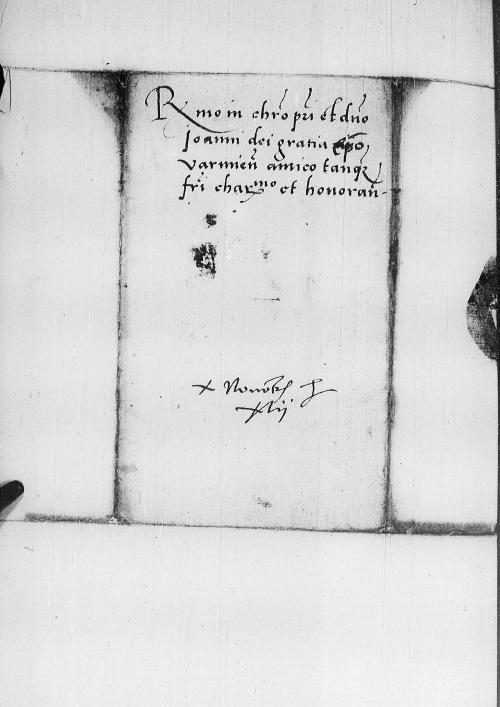 Rmo in chrō pri et dño
Joanni dei gratia epō
varmieñ amico tanqȝ
fri charmo et honorañ-
x Novobr
xlij